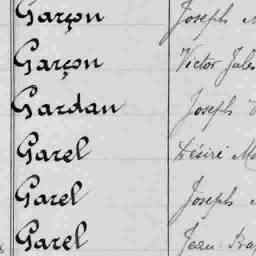 Garçon Joseph
Garçon Victor Jules
Gardan Joseph
Garel Désiré
Garel Joseph
Garel Jean